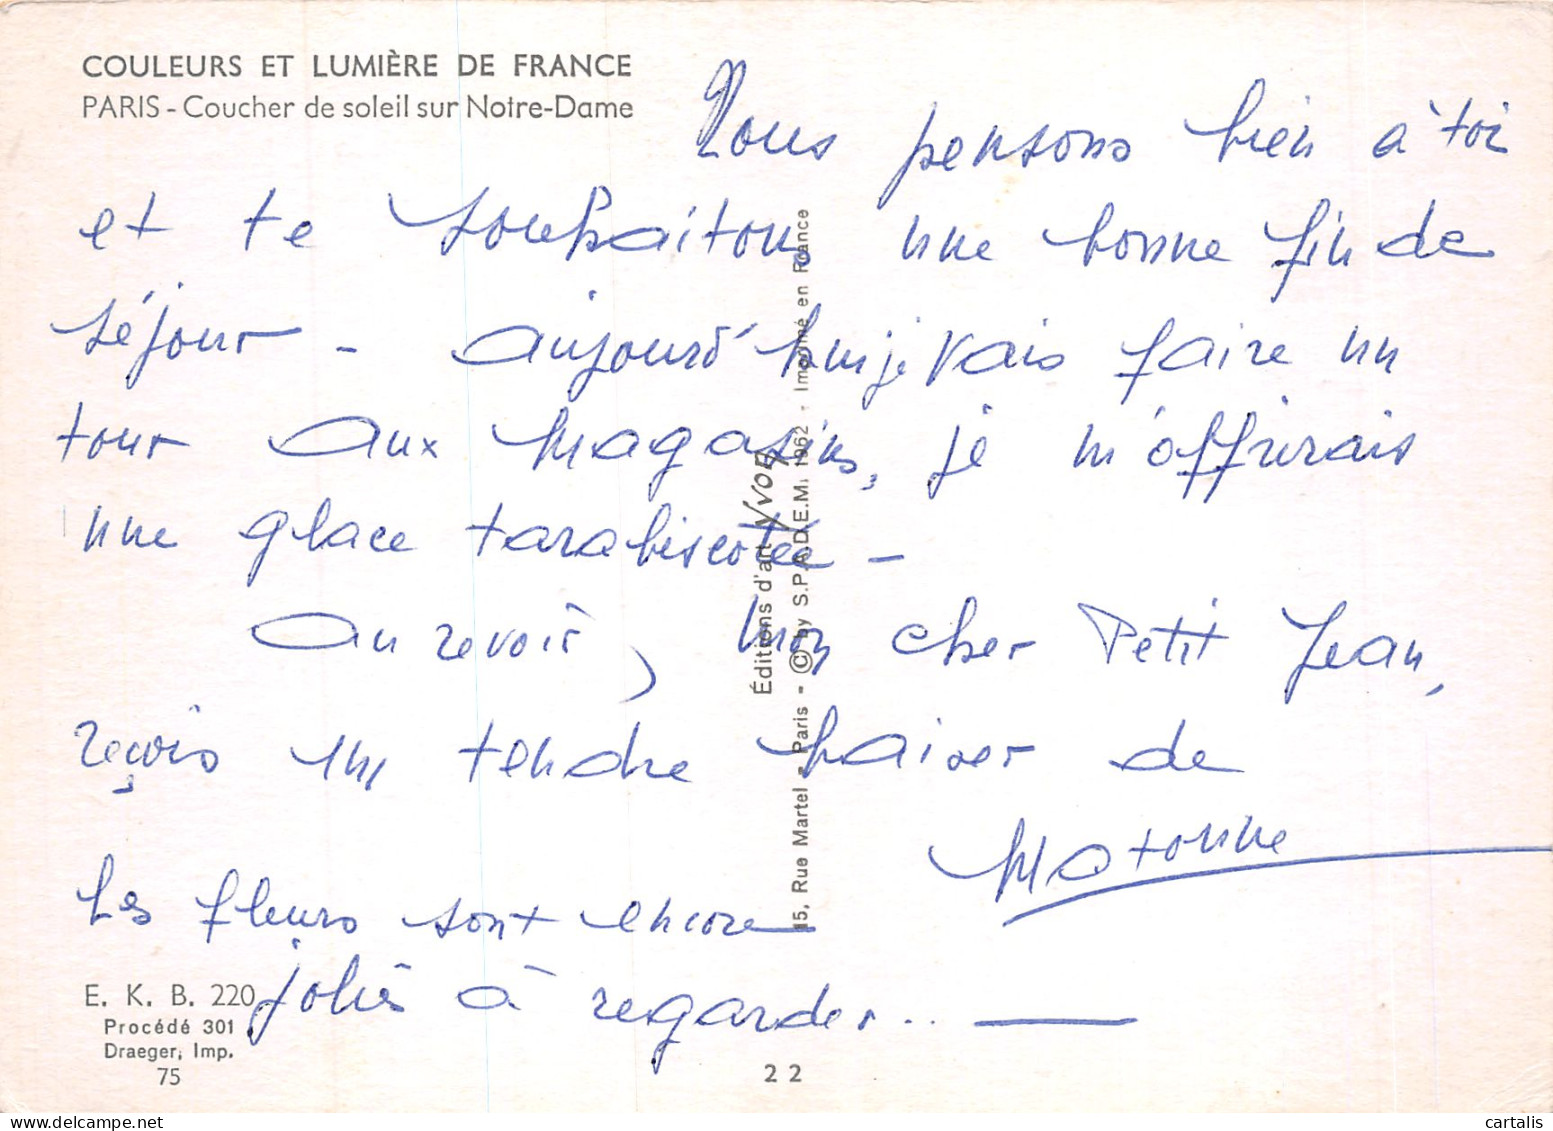 COULEURS ET LUMIÈRE DE FRANCE
PARIS - Coucher de soleil sur Notre-Dame
Nous pensons bien à toi
et te souhaitons une bonne fin de
séjour - aujourd'hui je vais faire un
tour aux magasins, je m'offrirais
une glace tarabiscotée -
au revoir, mon cher Petit Jean,
reçois un tendre baiser de
Matonne
Les fleurs sont encore
jolies à regarder..
Éditions d'art Yvon
15, Rue Martel - Paris - © by S.P.A.D.E.M. 1962 - Imprimé en France
E. K. B. 220
Procédé 301
Draeger, Imp.
75
22
cartalis